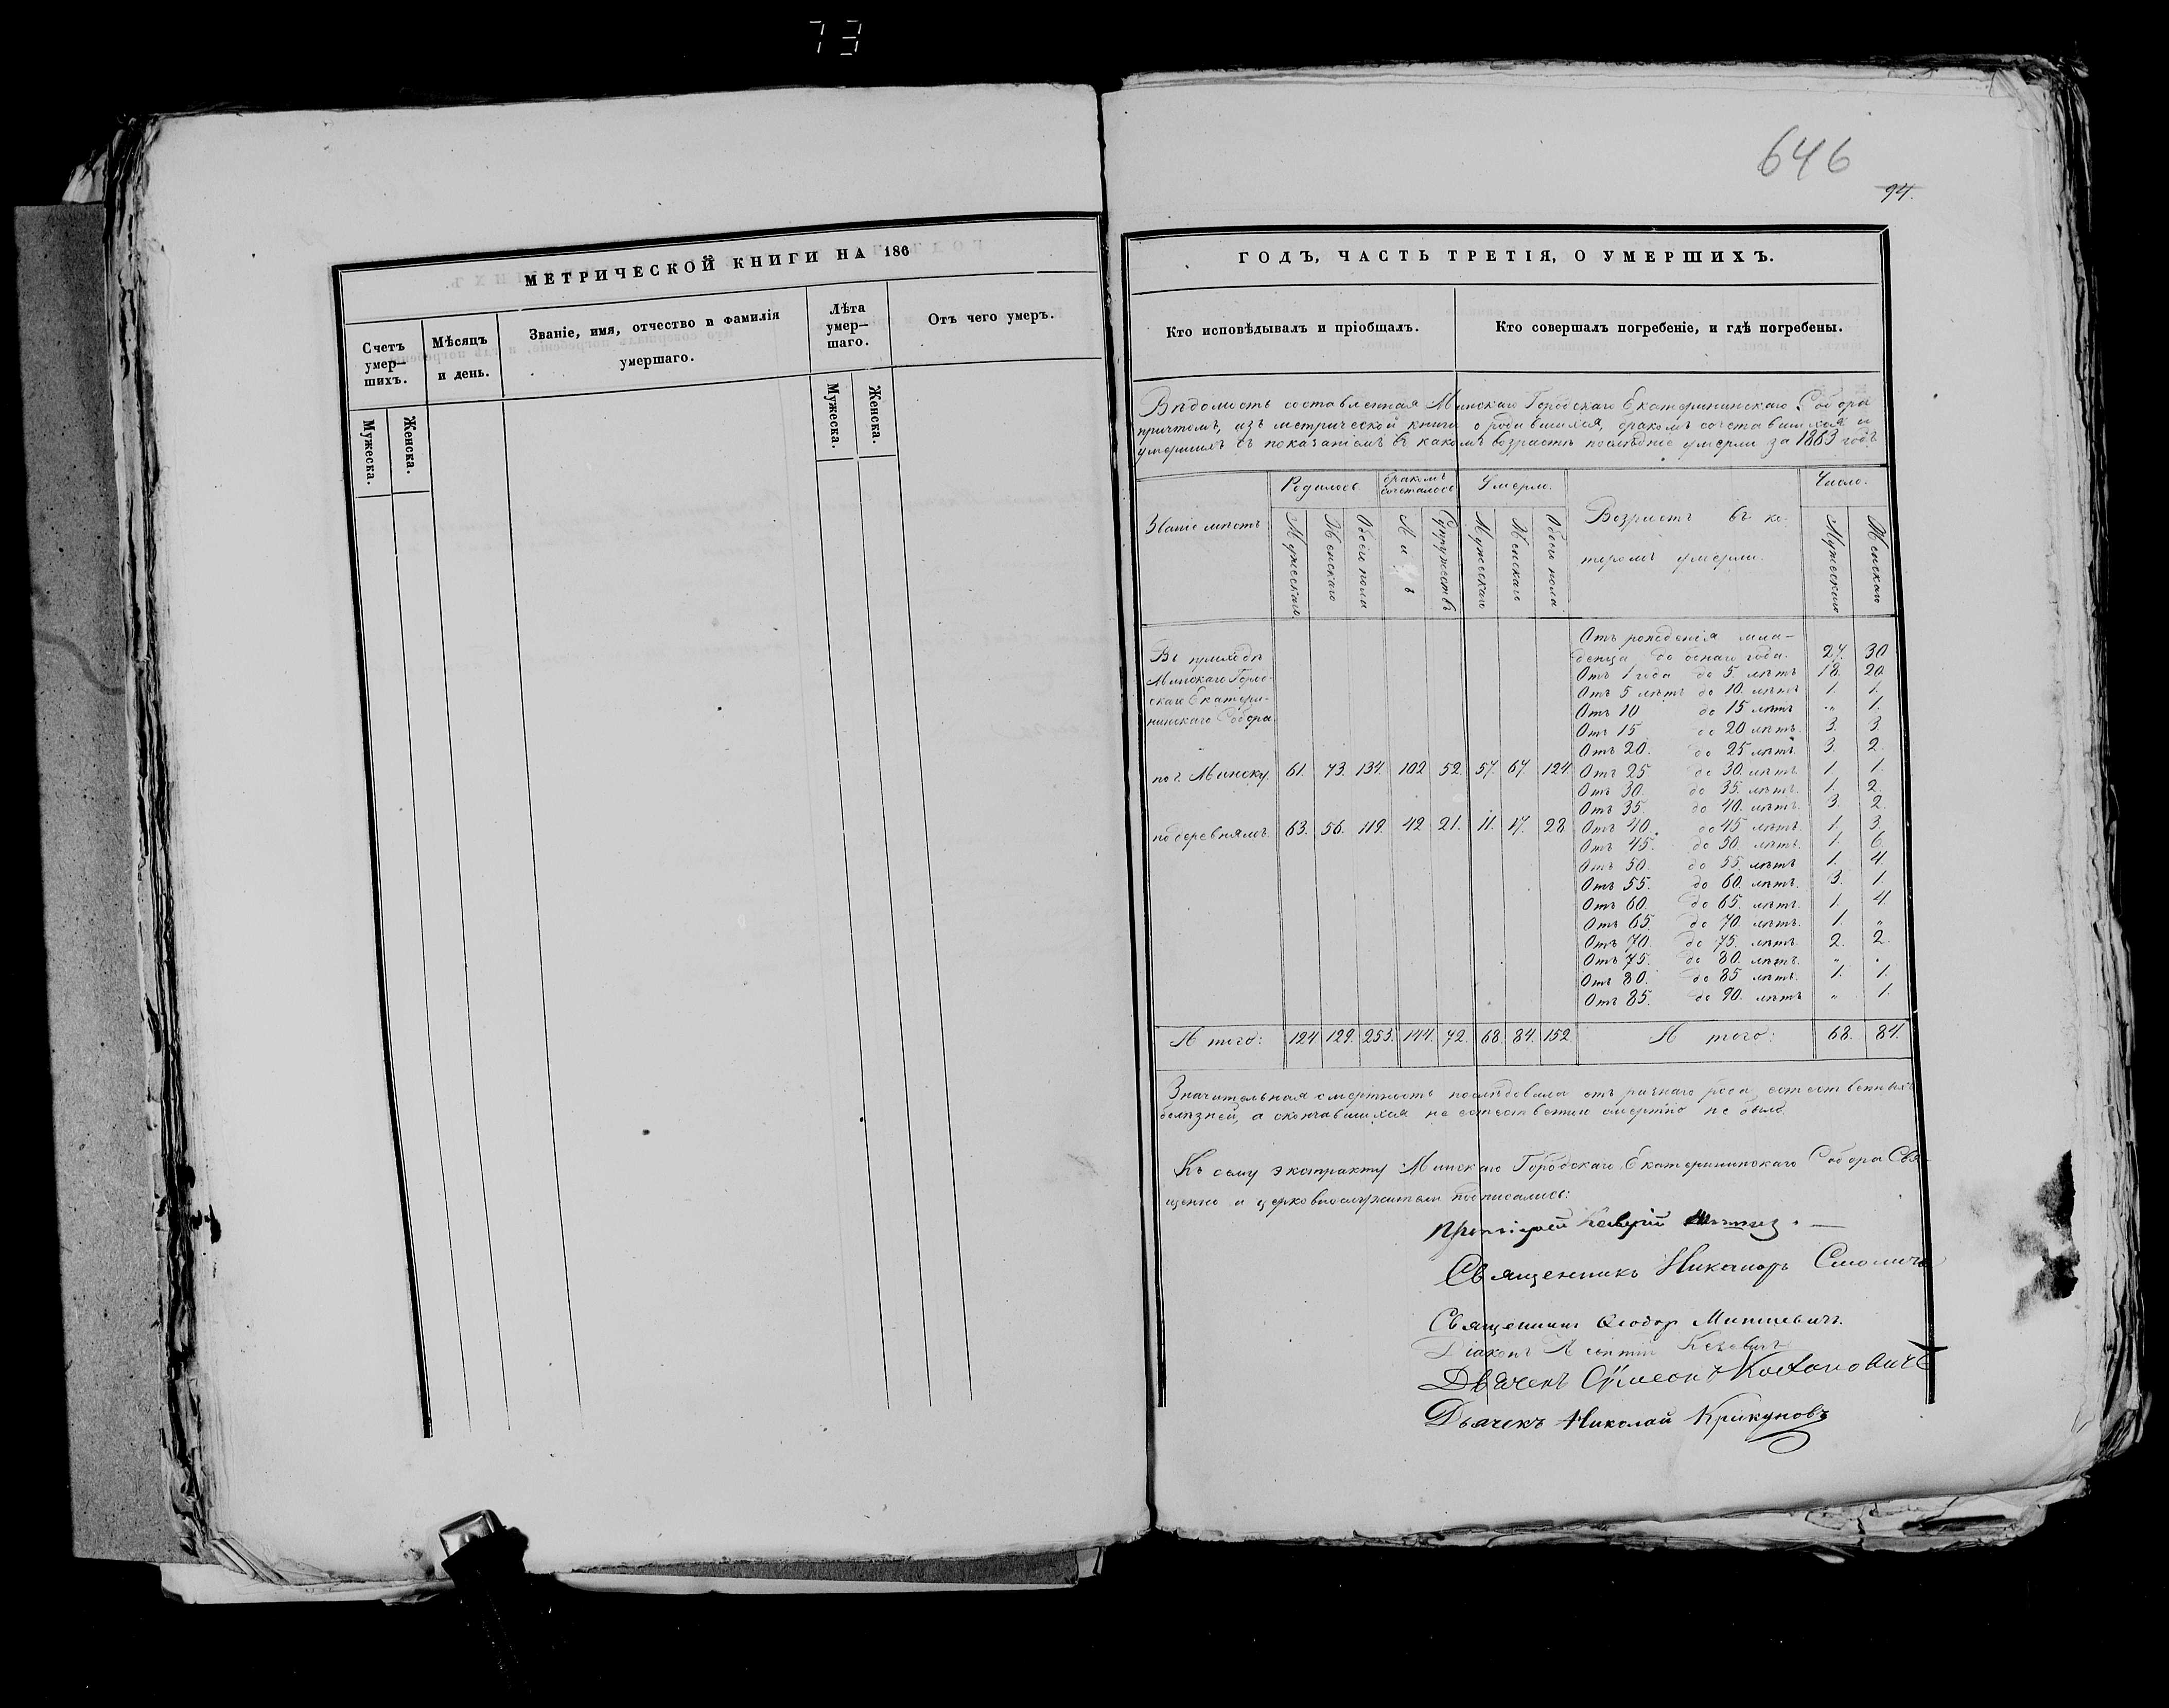 73
МЕТРИЧЕСКОЙ КНИГИ НА 186
Счетъ умер–шихъ.
Мѣсяцъ и день.
Званіе, имя, отчество и фамилія умершаго.
Лѣта умер–шаго.
Отъ чего умеръ.
Мужеска.
Женска.
Мужеска.
Женска.
646
94.
ГОДЪ, ЧАСТЬ ТРЕТІЯ, О УМЕРШИХЪ.
Кто исповѣдывалъ и пріобщалъ.
Кто совершалъ погребеніе, и гдѣ погребены.
Вѣдомость составленная Минскаго Городскаго Екатерининскаго Собора
причтомъ, изъ метрической книги о родившихся, бракомъ сочетавшихся и
умершихъ съ показаніемъ въ какомъ возрастѣ послѣдніе умерли за 1863 годъ
Званіе мѣстъ
Родилось
бракомъ сочеталось
Умерли.
Возрастъ въ ко-
торомъ умерли.
Число.
Мужескаго
Женскаго
Обоего пола
Лицъ
Супружествъ
Мужескаго
Женскаго
Обоего пола
Мужескаго
Женскаго
Въ приходѣ
Минскаго Город-
скаго Екатери-
нинскаго Собора
по г. Минску. 61. 73. 134. 102 52. 57. 67. 124
по деревнямъ. 63. 56. 119. 42 21. 11. 17. 28
Отъ рожденія мла-
денца до одного года. 27. 30
Отъ 1 года до 5 лѣтъ 18. 20
Отъ 5 лѣтъ до 10 лѣтъ 1. 1.
Отъ 10 до 15 лѣтъ " 1.
Отъ 15 до 20 лѣтъ. 3. 3.
Отъ 20. до 25 лѣтъ. 3. 2.
Отъ 25 до 30. лѣтъ. 1. 1.
Отъ 30 до 35. лѣтъ. 1. 2.
Отъ 35 до 40. лѣтъ. 3. 2.
Отъ 40. до 45 лѣтъ. 1. 3.
Отъ 45. до 50. лѣтъ. 1. 6.
Отъ 50. до 55. лѣтъ 1. 4.
Отъ 55. до 60. лѣтъ. 3. 1.
Отъ 60. до 65. лѣтъ. 1. 4.
Отъ 65. до 70. лѣтъ. 1. "
Отъ 70. до 75. лѣтъ 2. 2.
Отъ 75. до 80. лѣтъ. " "
Отъ 80. до 85 лѣтъ. 1. 1.
Отъ 85. до 90. лѣтъ " 1.
И того: 124 129. 253. 144. 72. 68. 84. 152. И того: 68. 84.
Значительная смертность послѣдовала отъ разнаго рода естественныхъ
болѣзней, а скончавшихся не естественною смертію не было.
Къ сему экстракту Минскаго Городскаго Екатерининскаго Собора Свя-
щенно и церковнослужители подписались:
Протоіерей
Священникъ Никаноръ Смоличъ
Священникъ Ѳеодор Мицкевичъ.
Діаконъ
Дьячекъ Сѵмеон
Дьячекъ Николай Крикуновъ